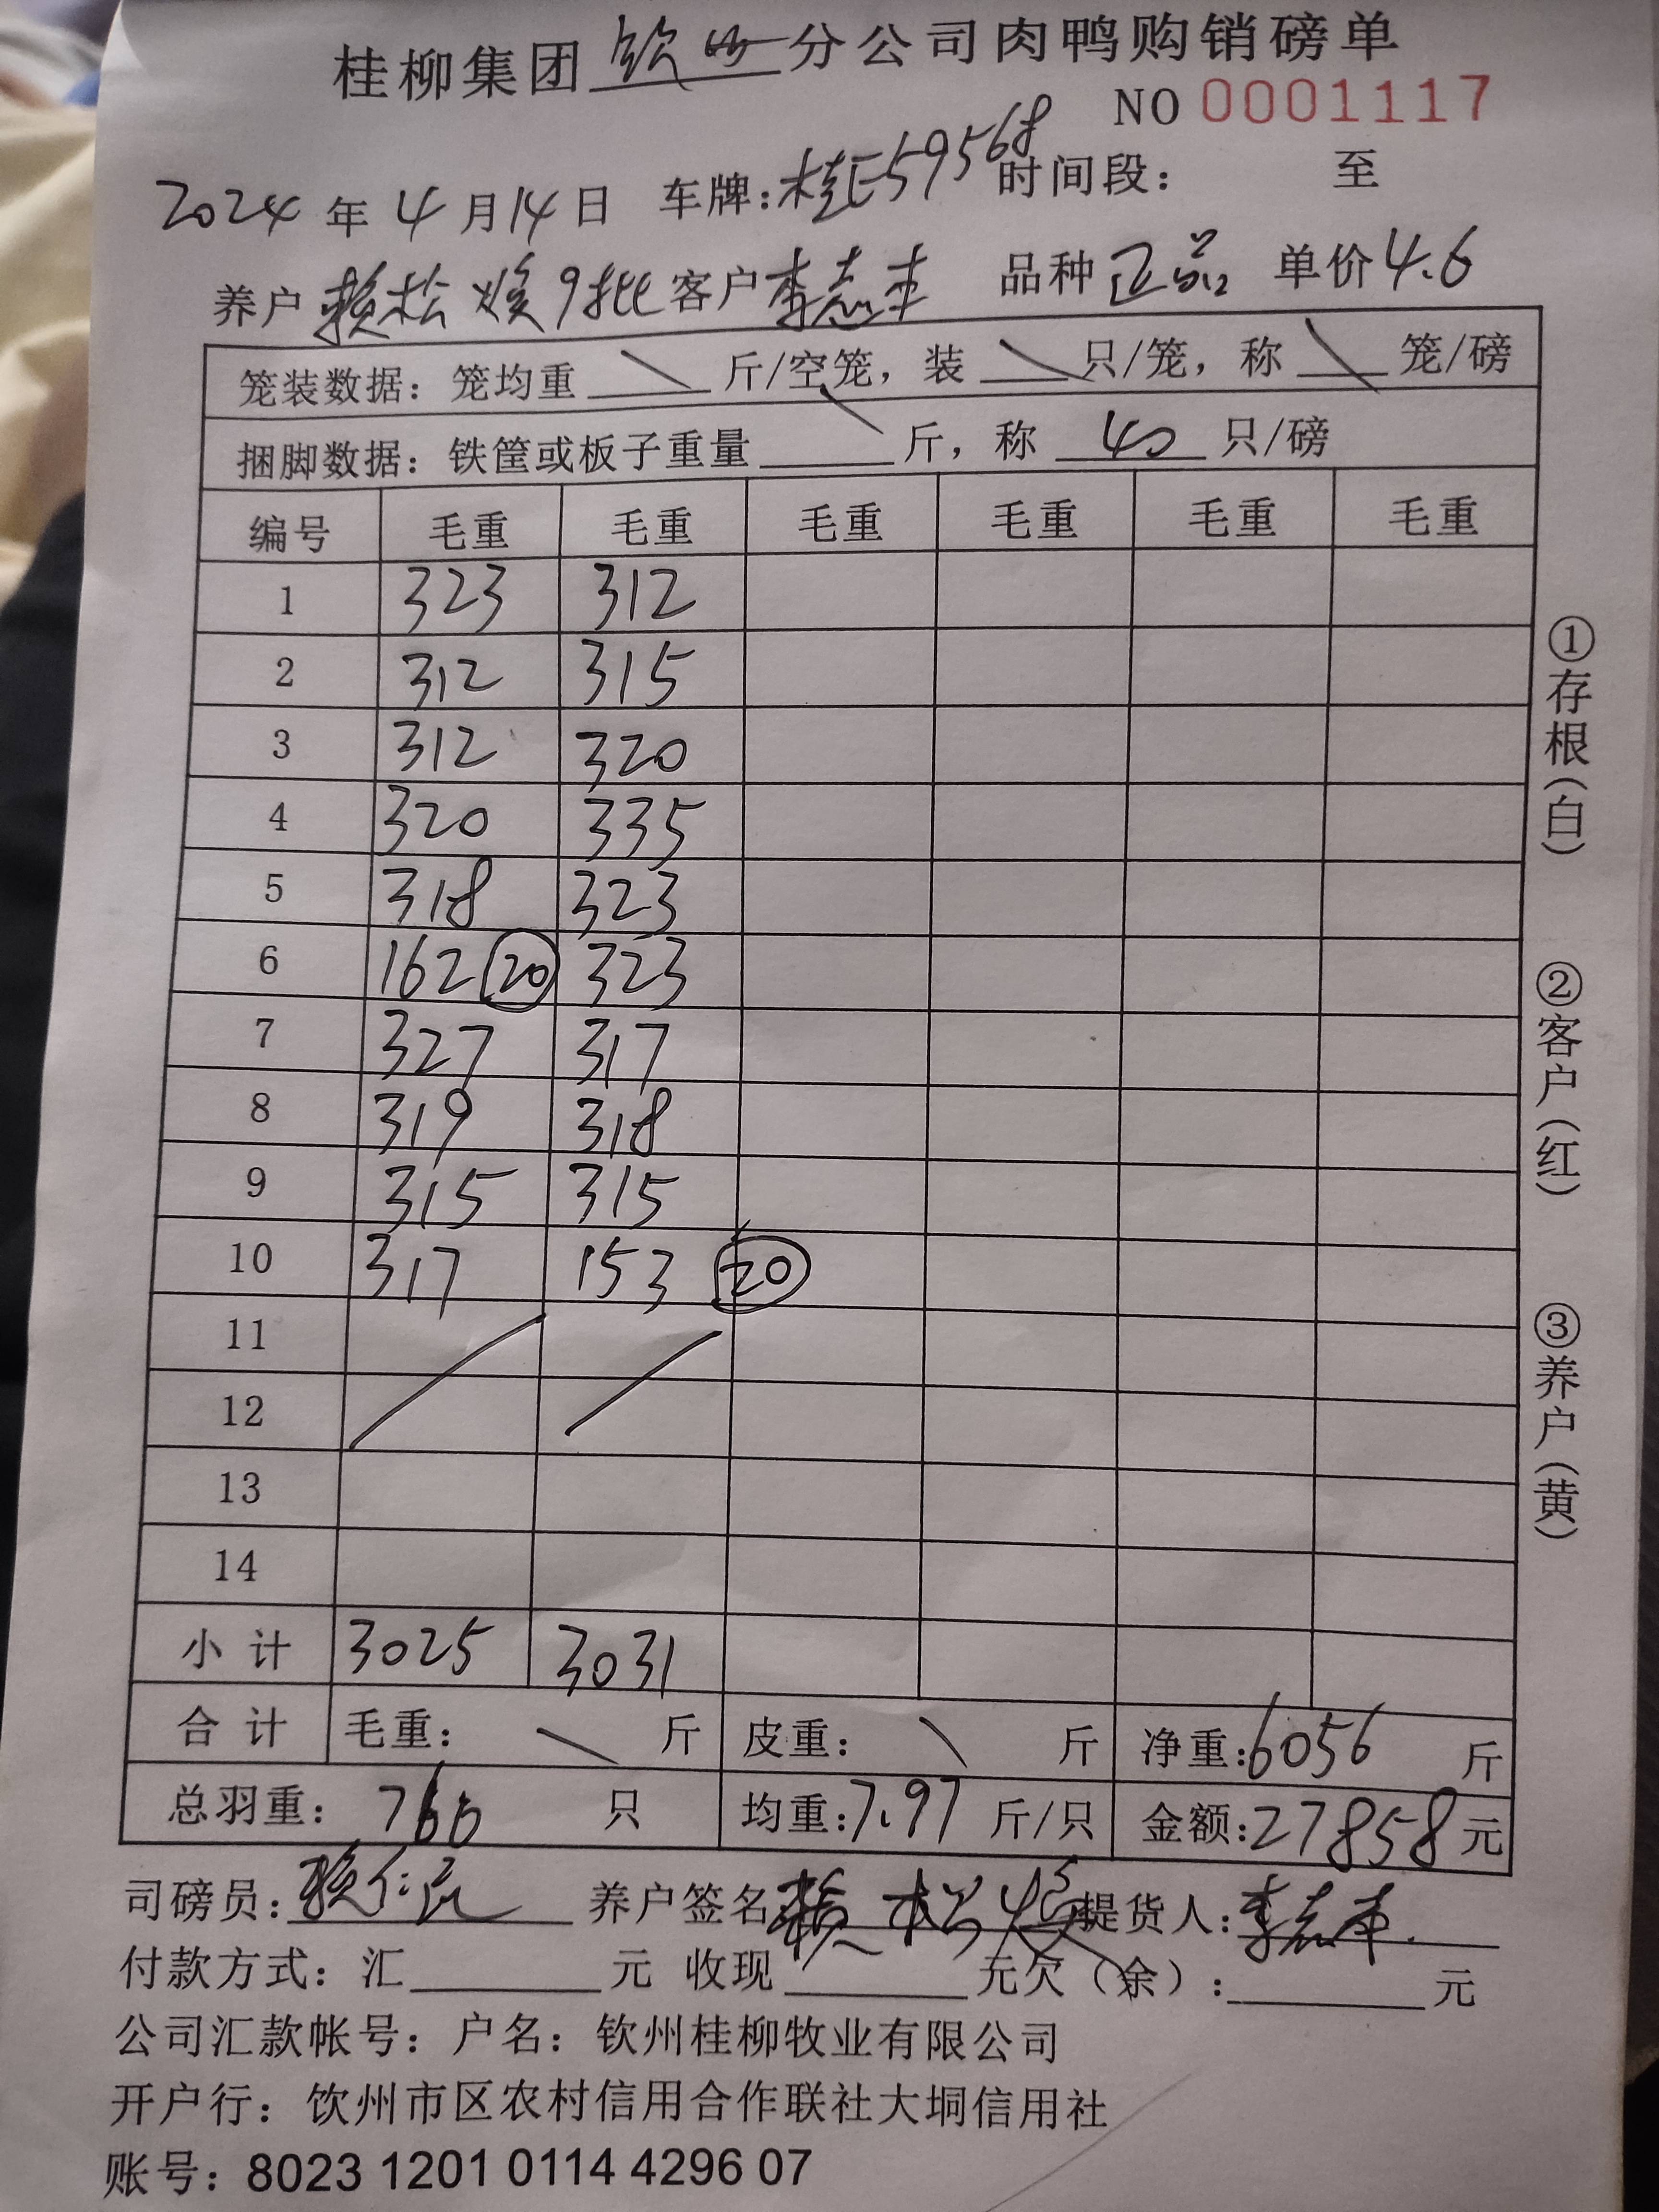 桂柳集团钦州分公司肉鸭购销磅单
NO 0001117
2024年4月14日 车牌:桂E59568 时间段: 至
养户 赖松焕9批 客户 李志本 品种 正品 单价 4.6
笼装数据:笼均重 \ 斤/空笼,装 \ 只/笼,称 \ 笼/磅
捆脚数据:铁筐或板子重量 \ 斤,称 40 只/磅
编号 毛重 毛重 毛重 毛重 毛重 毛重
1 323 312
2 312 315
3 312 320
4 320 335
5 318 323
6 162 ⑳ 323
7 327 317
8 319 318
9 315 315
10 317 153 ⑳
11
12
13
14
小计 3025 3031
合计 毛重: \ 斤 皮重: \ 斤 净重:6056 斤
总羽重: 760 只 均重:7.97 斤/只 金额:27858元
司磅员:赖 养户签名:赖松焕 提货人:李志本
付款方式:汇 元 收现 元欠(余): 元
公司汇款帐号:户名:钦州桂柳牧业有限公司
开户行:钦州市区农村信用合作联社大垌信用社
账号:8023 1201 0114 4296 07
①存根(白)
②客户(红)
③养户(黄)